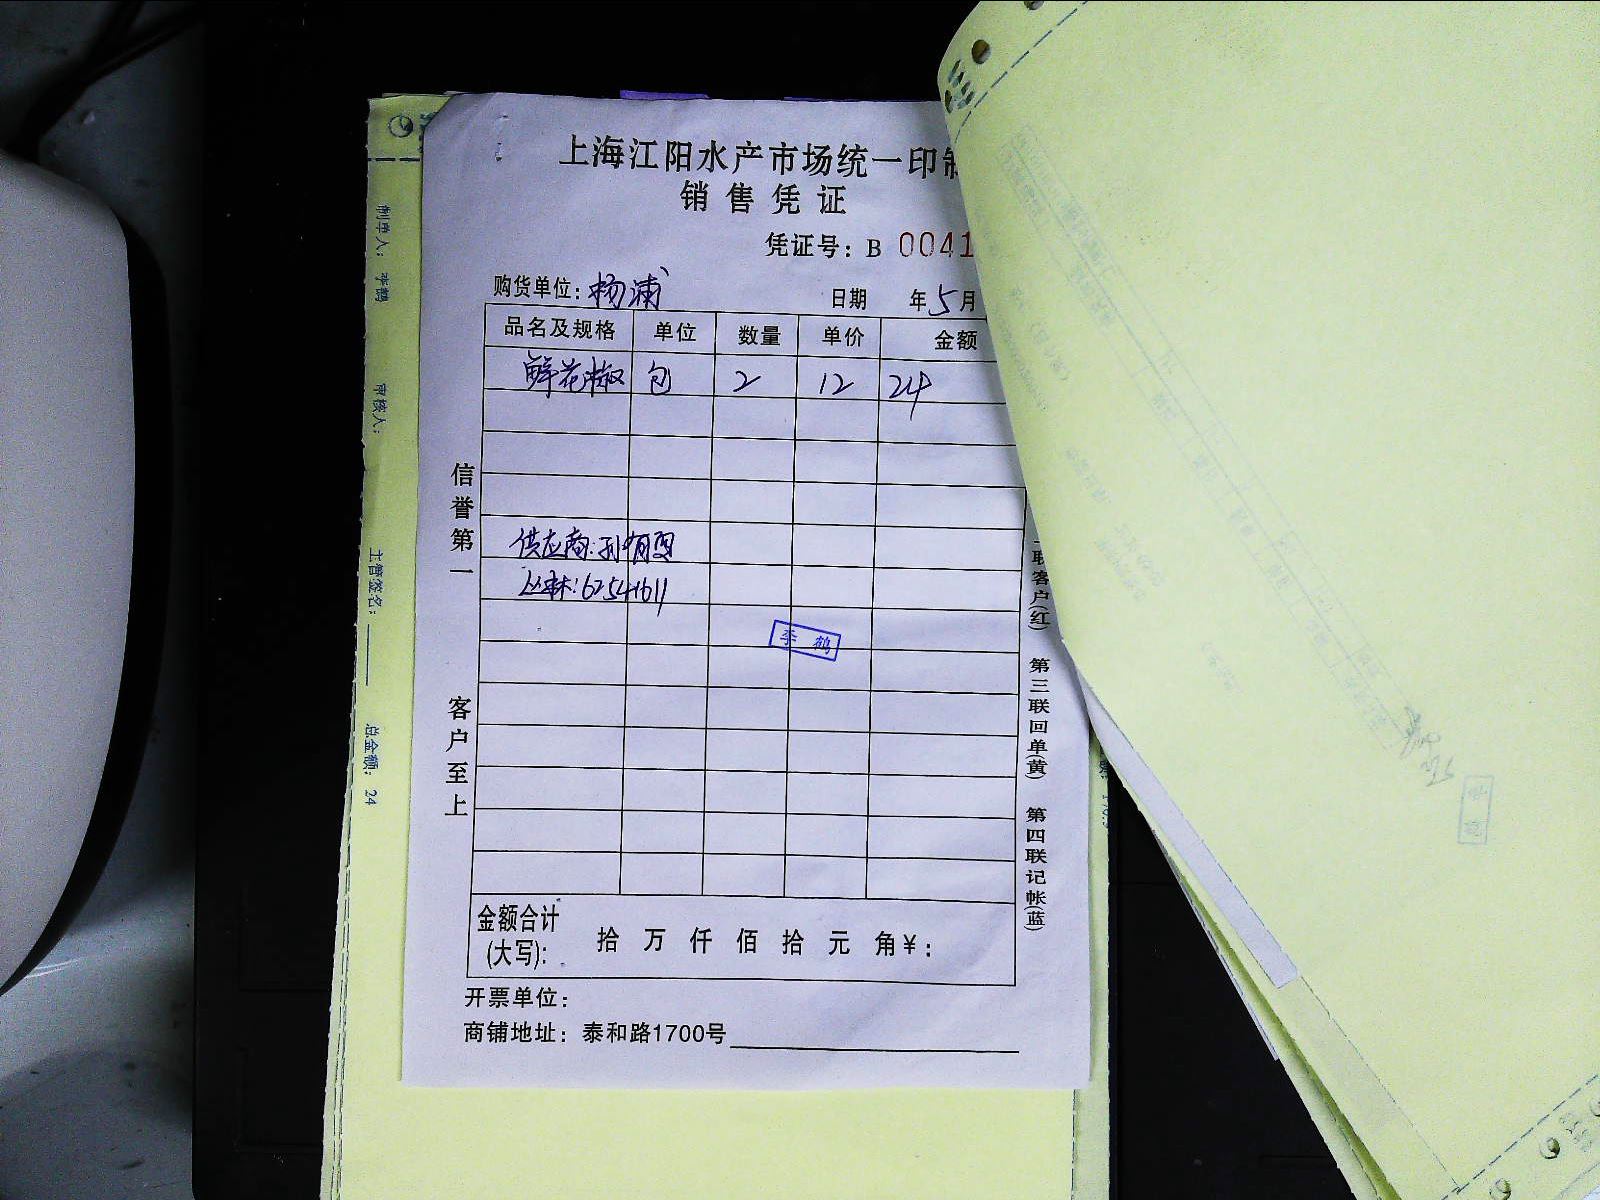 上海江阳水产市场统一印制
销售凭证
凭证号：B 0041
购货单位：杨浦 日期 年5月
品名及规格 单位 数量 单价 金额
鲜花椒 包 2 12 24
供应商：孙
62541611
李鹤
信誉第一
客户至上
联客户(红) 第三联回单(黄) 第四联记帐(蓝)
金额合计
(大写)： 拾 万 仟 佰 拾 元 角￥：
开票单位：
商铺地址：泰和路1700号
制单人：李鹤 审核人： 主管签名： 总金额：24